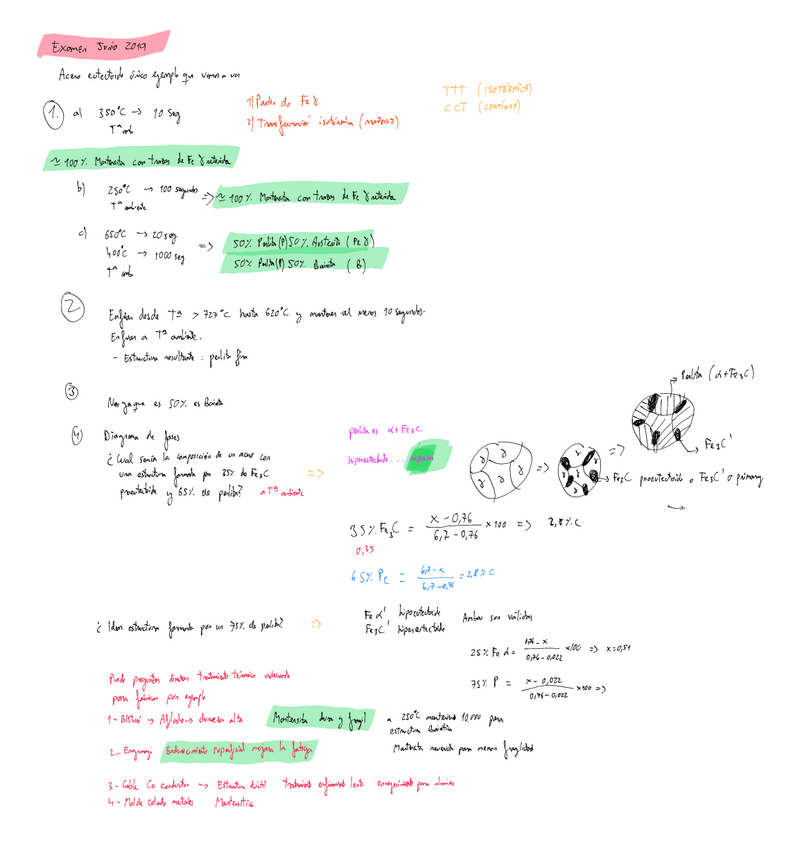 Examen Junio 2019
Acero eutectoide único ejemplo que vamos a ver
1. a) 350°C → 10 seg
Tª amb
1) Partir de Fe γ
2) Transformación isotérmica
TTT (ISOTÉRMICA)
CCT (CONTINUO)
≃ 100% Martensita con trazas de Fe γ retenida
b) 250°C → 100 segundos => ≃ 100% Martensita con trazas de Fe γ retenida
Tª ambiente
c) 650°C → 20 seg => 50% Perlita (P) 50% Austenita (Fe γ)
400°C → 1000 seg 50% Perlita (P) 50% Bainita (B)
Tª amb
2 Enfriar desde Tª > 727°C hasta 620°C y mantener al menos 10 segundos.
Enfriar a Tª ambiente.
- Estructura resultante: perlita fina
3
No ya que es 50% es Bainita
4 Diagrama de fases
¿Cual sería la composición de un acero con
una estructura formada por 35% de Fe3C
proeutectoide y 65% de perlita? a Tª ambiente
=>
perlita es α+Fe3C
hipereutectoide...
γ γ γ γ γ => γ γ =>
Perlita (α+Fe3C)
Fe3C'
Fe3C proeutectoide o Fe3C' o primary
35% Fe3C = x-0,76 / 6,7-0,76 x100 => 2,8% C
0,35
65% Pe = 6,7-x / 6,7-0,76 = 2,8% C
¿Idem estructura formada por un 75% de perlita? =>
Fe α' hipoeutectoide
Fe3C' hipereutectoide
Ambas son válidas
25% Fe α = 0,76-x / 0,76-0,022 x100 => x=0,51
75% P = x-0,022 / 0,76-0,022 x100 =>
Puede preguntar diseñar tratamiento térmico adecuado
para fabricar por ejemplo
1- Bisturí → Afilado → dureza alta Martensita dura y frágil
a 250°C manteniendo 10,000 para
estructura Bainitica
2- Engranaje Endurecimiento superficial mejora la fatiga
Martensita revenida para menor fragilidad
3- Cable Cu conductor → Estructura dúctil tratamiento enfriamiento lento
4- Molde colado metales Martensítica